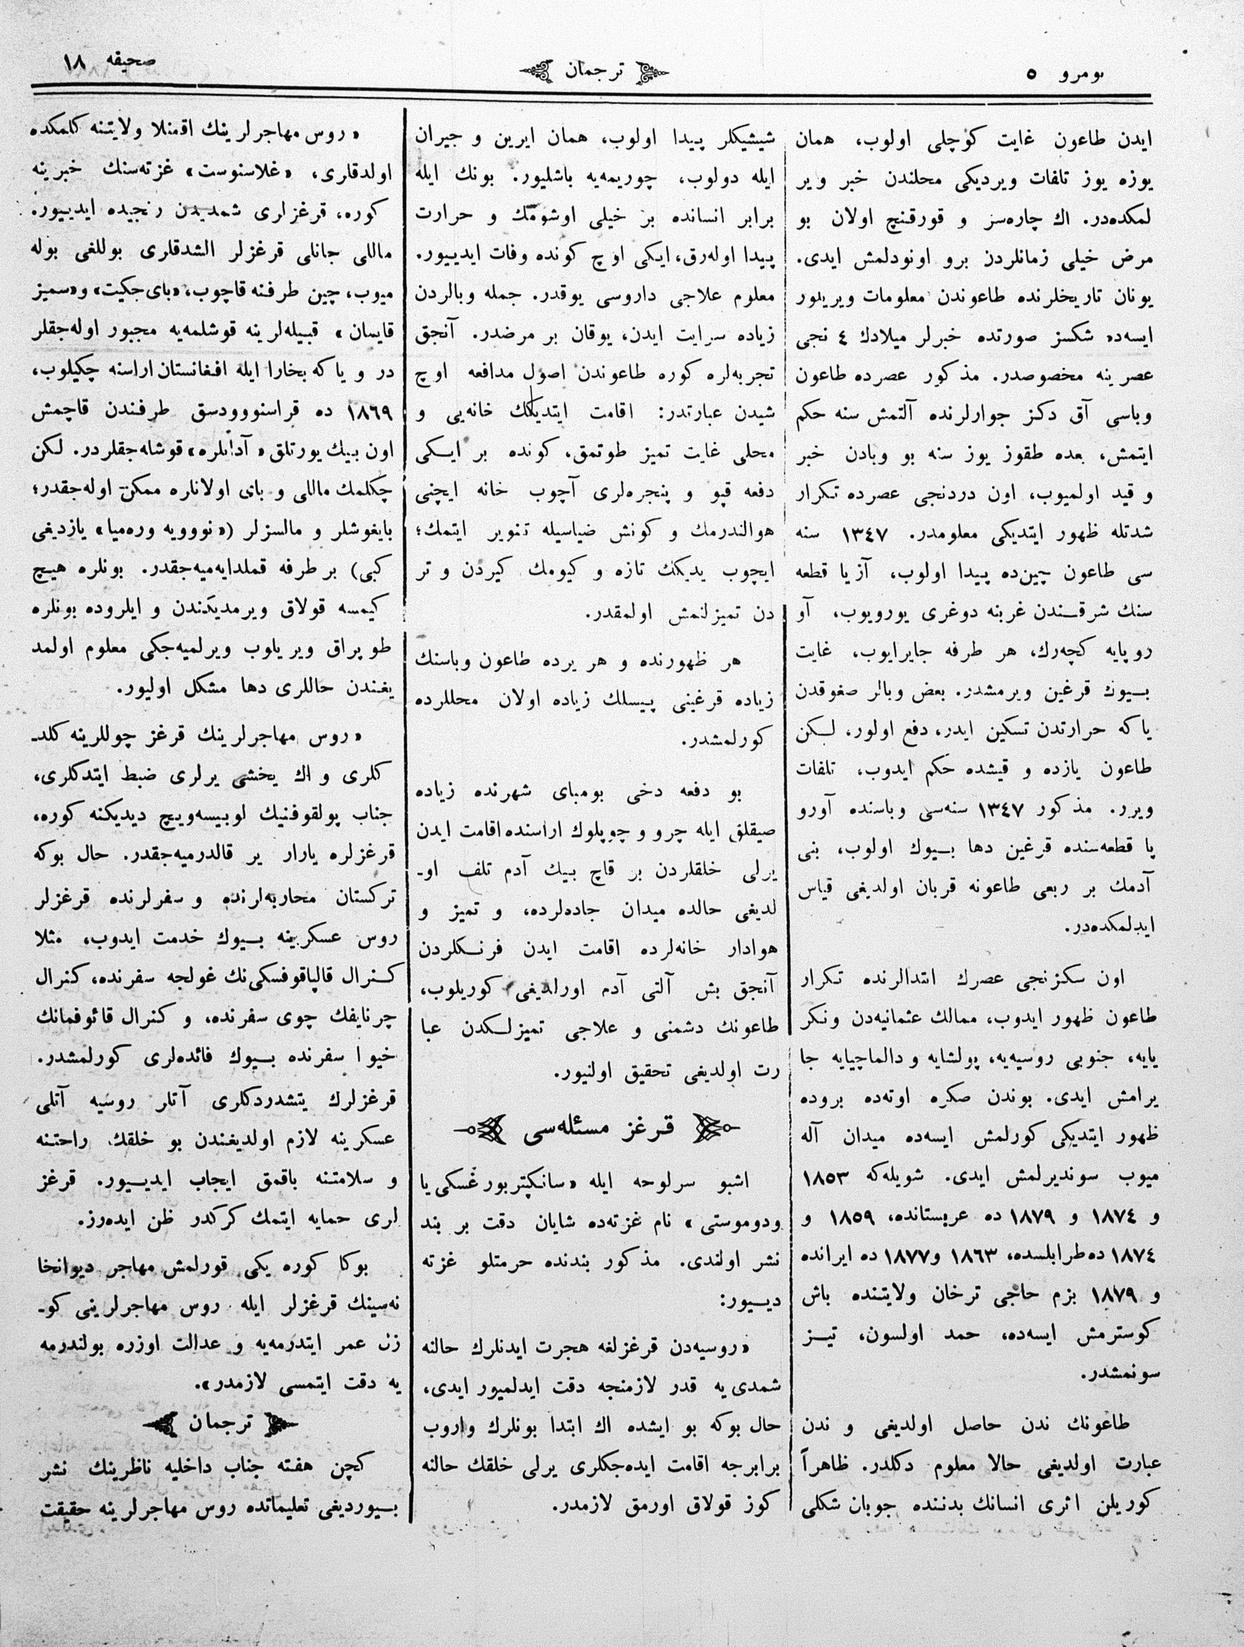 نومرو ٥
ترجمان
صحیفه ١٨
ایدن طاعون غایت كوچلی اولوب، همان
یوزه یوز تلفات ویردیكی محلندن خبر ویر
لمكده‌در. اك چاره‌سز و قورقنچ اولان بو
مرض خیلی زمانلردن برو اونودلمش ایدی.
یونان تاریخلرنده طاعوندن معلومات ویریلور
ایسه‌ده شكسز صورتده خبرلر میلادك ٤ نجی
عصرینه مخصوصدر. مذكور عصرده طاعون
وباسی آق دكز جوارلرنده آلتمش سنه حكم
ایتمش، بعده طقوز یوز سنه بو وبادن خبر
و قید اولمیوب، اون دردنجی عصرده تكرار
شدتله ظهور ایتدیكی معلومدر. ١٣٤٧ سنه
سی طاعون چین‌ده پیدا اولوب، آزیا قطعه
سنك شرقندن غربنه دوغری یورویوب، آو
روپایه كچه‌رك، هر طرفه جایرایوب، غایت
بیوك قرغین ویرمشدر. بعض وبالر صغوقدن
یاكه حرارتدن تسكین ایدر، دفع اولور، لكن
طاعون یازده و قیشده حكم ایدوب، تلفات
ویرر. مذكور ١٣٤٧ سنه‌سی وباسنده آورو
پا قطعه‌سنده قرغین دها بیوك اولوب، بنی
آدمك بر ربعی طاعونه قربان اولدیغی قیاس
ایدلمكده‌در.
اون سكزنجی عصرك ابتدالرنده تكرار
طاعون ظهور ایدوب، ممالك عثمانیه‌دن ونكر
یایه، جنوبی روسیه‌یه، پولشایه و دالماچیایه جا
یرامش ایدی. بوندن صكره اوته‌ده بروده
ظهور ایتدیكی كورلمش ایسه‌ده میدان آله
میوب سوندیرلمش ایدی. شویله‌كه ١٨٥٣
و ١٨٧٤ و ١٨٧٩ ده عربستانده، ١٨٥٩ و
١٨٧٤ ده طرابلسده، ١٨٦٣ و١٨٧٧ ده ایرانده
و ١٨٧٩ بزم حاجی ترخان ولایتنده باش
كوسترمش ایسه‌ده، حمد اولسون، تیز
سونمشدر.
طاعونك ندن حاصل اولدیغی و ندن
عبارت اولدیغی حالا معلوم دكلدر. ظاهراً
كوریلن اثری انسانك بدننده جوبان شكلی
شیشیكلر پیدا اولوب، همان ایرین و جیران
ایله دولوب، چوریمه‌یه باشلیور. بونك ایله
برابر انسانده بز خیلی اوشومك و حرارت
پیدا اوله‌رق، ایكی اوچ كونده وفات ایدییور.
معلوم علاجی داروسی یوقدر. جمله وبالردن
زیاده سرایت ایدن، یوقان بر مرضدر. آنجق
تجربه‌لره كوره طاعوندن اصول مدافعه اوچ
شیدن عبارتدر: اقامت ایتدیكك خانه‌یی و
محلی غایت تمیز طوتمق، كونده بر ایكی
دفعه قپو و پنجره‌لری آچوب خانه ایچنی
هوالندرمك و كونش ضیاسیله تنویر ایتمك؛
ایچوب یدیكك تازه و كیومك كیردن و تر
دن تمیزلنمش اولمقدر.
هر ظهورنده و هر یرده طاعون وباسنك
زیاده قرغینی پیسلك زیاده اولان محللرده
كورلمشدر.
بو دفعه دخی بومبای شهرنده زیاده
صیقلق ایله چرو و چوپلوك اراسنده اقامت ایدن
یرلی خلقلردن بر قاچ بیك آدم تلف او-
لدیغی حالده میدان جاده‌لرده، و تمیز و
هوادار خانه‌لرده اقامت ایدن فرنكلردن
آنجق بش آلتی آدم اورلدیغی كوریلوب،
طاعونك دشمنی و علاجی تمیزلكدن عبا
رت اولدیغی تحقیق اولنیور.
قرغز مسئله‌سی
اشبو سرلوحه ایله «سانكتربورغسكی یا
ودوموستی» نام غزته‌ده شایان دقت بر بند
نشر اولندی. مذكور بندنده حرمتلو غزته
دییور:
«روسیه‌دن قرغزلغه هجرت ایدنلرك حالنه
شمدی یه قدر لازمنجه دقت ایدلمیور ایدی،
حال بوكه بو ایشده اك ابتدا بونلرك واروب
برابرجه اقامت ایده‌جكلری یرلی خلقك حالنه
كوز قولاق اورمق لازمدر.
«روس مهاجرلرینك اقمنلا ولایتنه كلمكده
اولدقلری، «غلاسنوست» غزته‌سنك خبرینه
كوره، قرغزلری شمدیدن رنجیده ایدییور.
ماللی جانلی قرغزلر الشدقلری بوللغی بوله
میوب، چین طرفنه قاچوب، «بای جكیت» و«سمیز
قایسان» قبیله‌لرینه قوشلمه‌یه مجبور اوله‌جقلر
در و یاكه بخارا ایله افغانستان اراسنه چكیلوب،
١٨٦٩ ده قراسنوودسق طرفندن قاچمش
اون بیك یورتلق «آدایلره» قوشله‌جقلردر. لكن
چكلمك ماللی و بای اولانلره ممكن اوله‌جقدر؛
بایغوشلر و مالسزلر («نوویه وره‌میا» یازدیغی
كبی) بر طرفه قملدایه‌میه‌جقدر. بونلره هیچ
كیمسه قولاق ویرمدیكندن و ایلروده بونلره
طوپراق ویریلوب ویرلمیه‌جكی معلوم اولمد
یغندن حاللری دها مشكل اولیور.
«روس مهاجرلرینك قرغز چوللرینه كلد-
كلری و اك یخشی یرلری ضبط ایتدكلری،
جناب پولقوفنیك لوبیسه‌ویچ دیدیكنه كوره،
قرغزلره یارار یر قالدرمیه‌جقدر. حال بوكه
تركستان محاربه‌لرنده و سفرلرنده قرغزلر
روس عسكرینه بیوك خدمت ایدوب، مثلا
كنرال قالپاقوفسكی‌نك غولجه سفرنده، كنرال
چرنایفك چوی سفرنده، و كنرال قائوفمانك
خیوا سفرنده بیوك فائده‌لری كورلمشدر.
قرغزلرك یتشدردكلری آتلر روسیه آتلی
عسكرینه لازم اولدیغندن بو خلقك راحتنه
و سلامتنه باقمق ایجاب ایدییور. قرغز
لری حمایه ایتمك كركدر ظن ایده‌رز.
بوكا كوره یكی قورلمش مهاجر دیوانخا
نه‌سینك قرغزلر ایله روس مهاجرلرینی كو-
زل عمر ایتدرمه‌یه و عدالت اوزره بولندرمه
یه دقت ایتمسی لازمدر».
ترجمان
كچن هفته جناب داخلیه ناظرینك نشر
بیوردیغی تعلیماتده روس مهاجرلرینه حقیقت